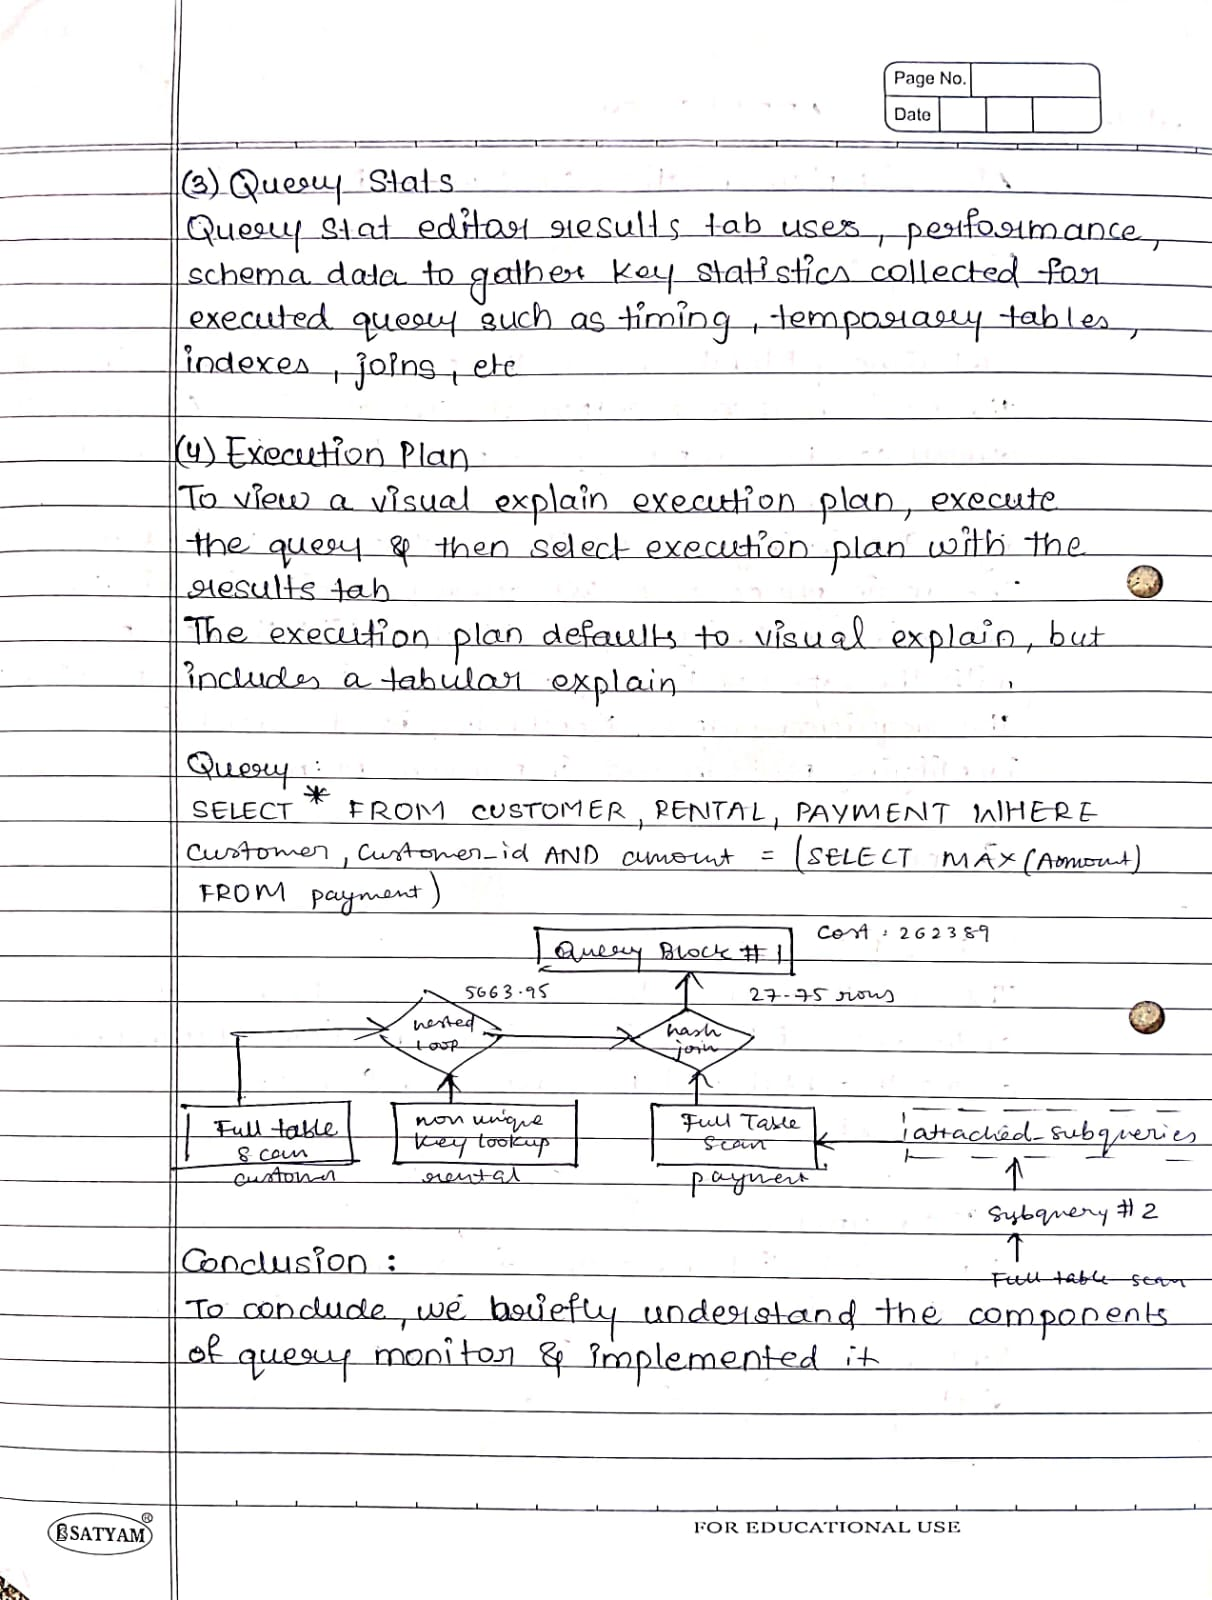 Page No.
Date
(3) Query Stats
Query Stat editor results tab uses, performance,
schema data to gather key statistics collected for
executed query such as timing, temporary tables,
indexes, joins, etc
(4) Execution Plan
To view a visual explain execution plan, execute
the query & then select execution plan with the
results tab
The execution plan defaults to visual explain, but
includes a tabular explain
Query :
SELECT * FROM CUSTOMER, RENTAL, PAYMENT WHERE
customer, customer_id AND amount = (SELECT MAX (Amount)
FROM payment)
Query Block # 1
Cost : 262389
5663.95
27.75 rows
nested
loop
hash
join
Full table
scan
customer
non unique
key lookup
rental
Full Table
Scan
payment
attached_subqueries
Subquery # 2
Full table scan
Conclusion :
To conclude, we briefly understand the components
of query monitor & implemented it
SATYAM
FOR EDUCATIONAL USE